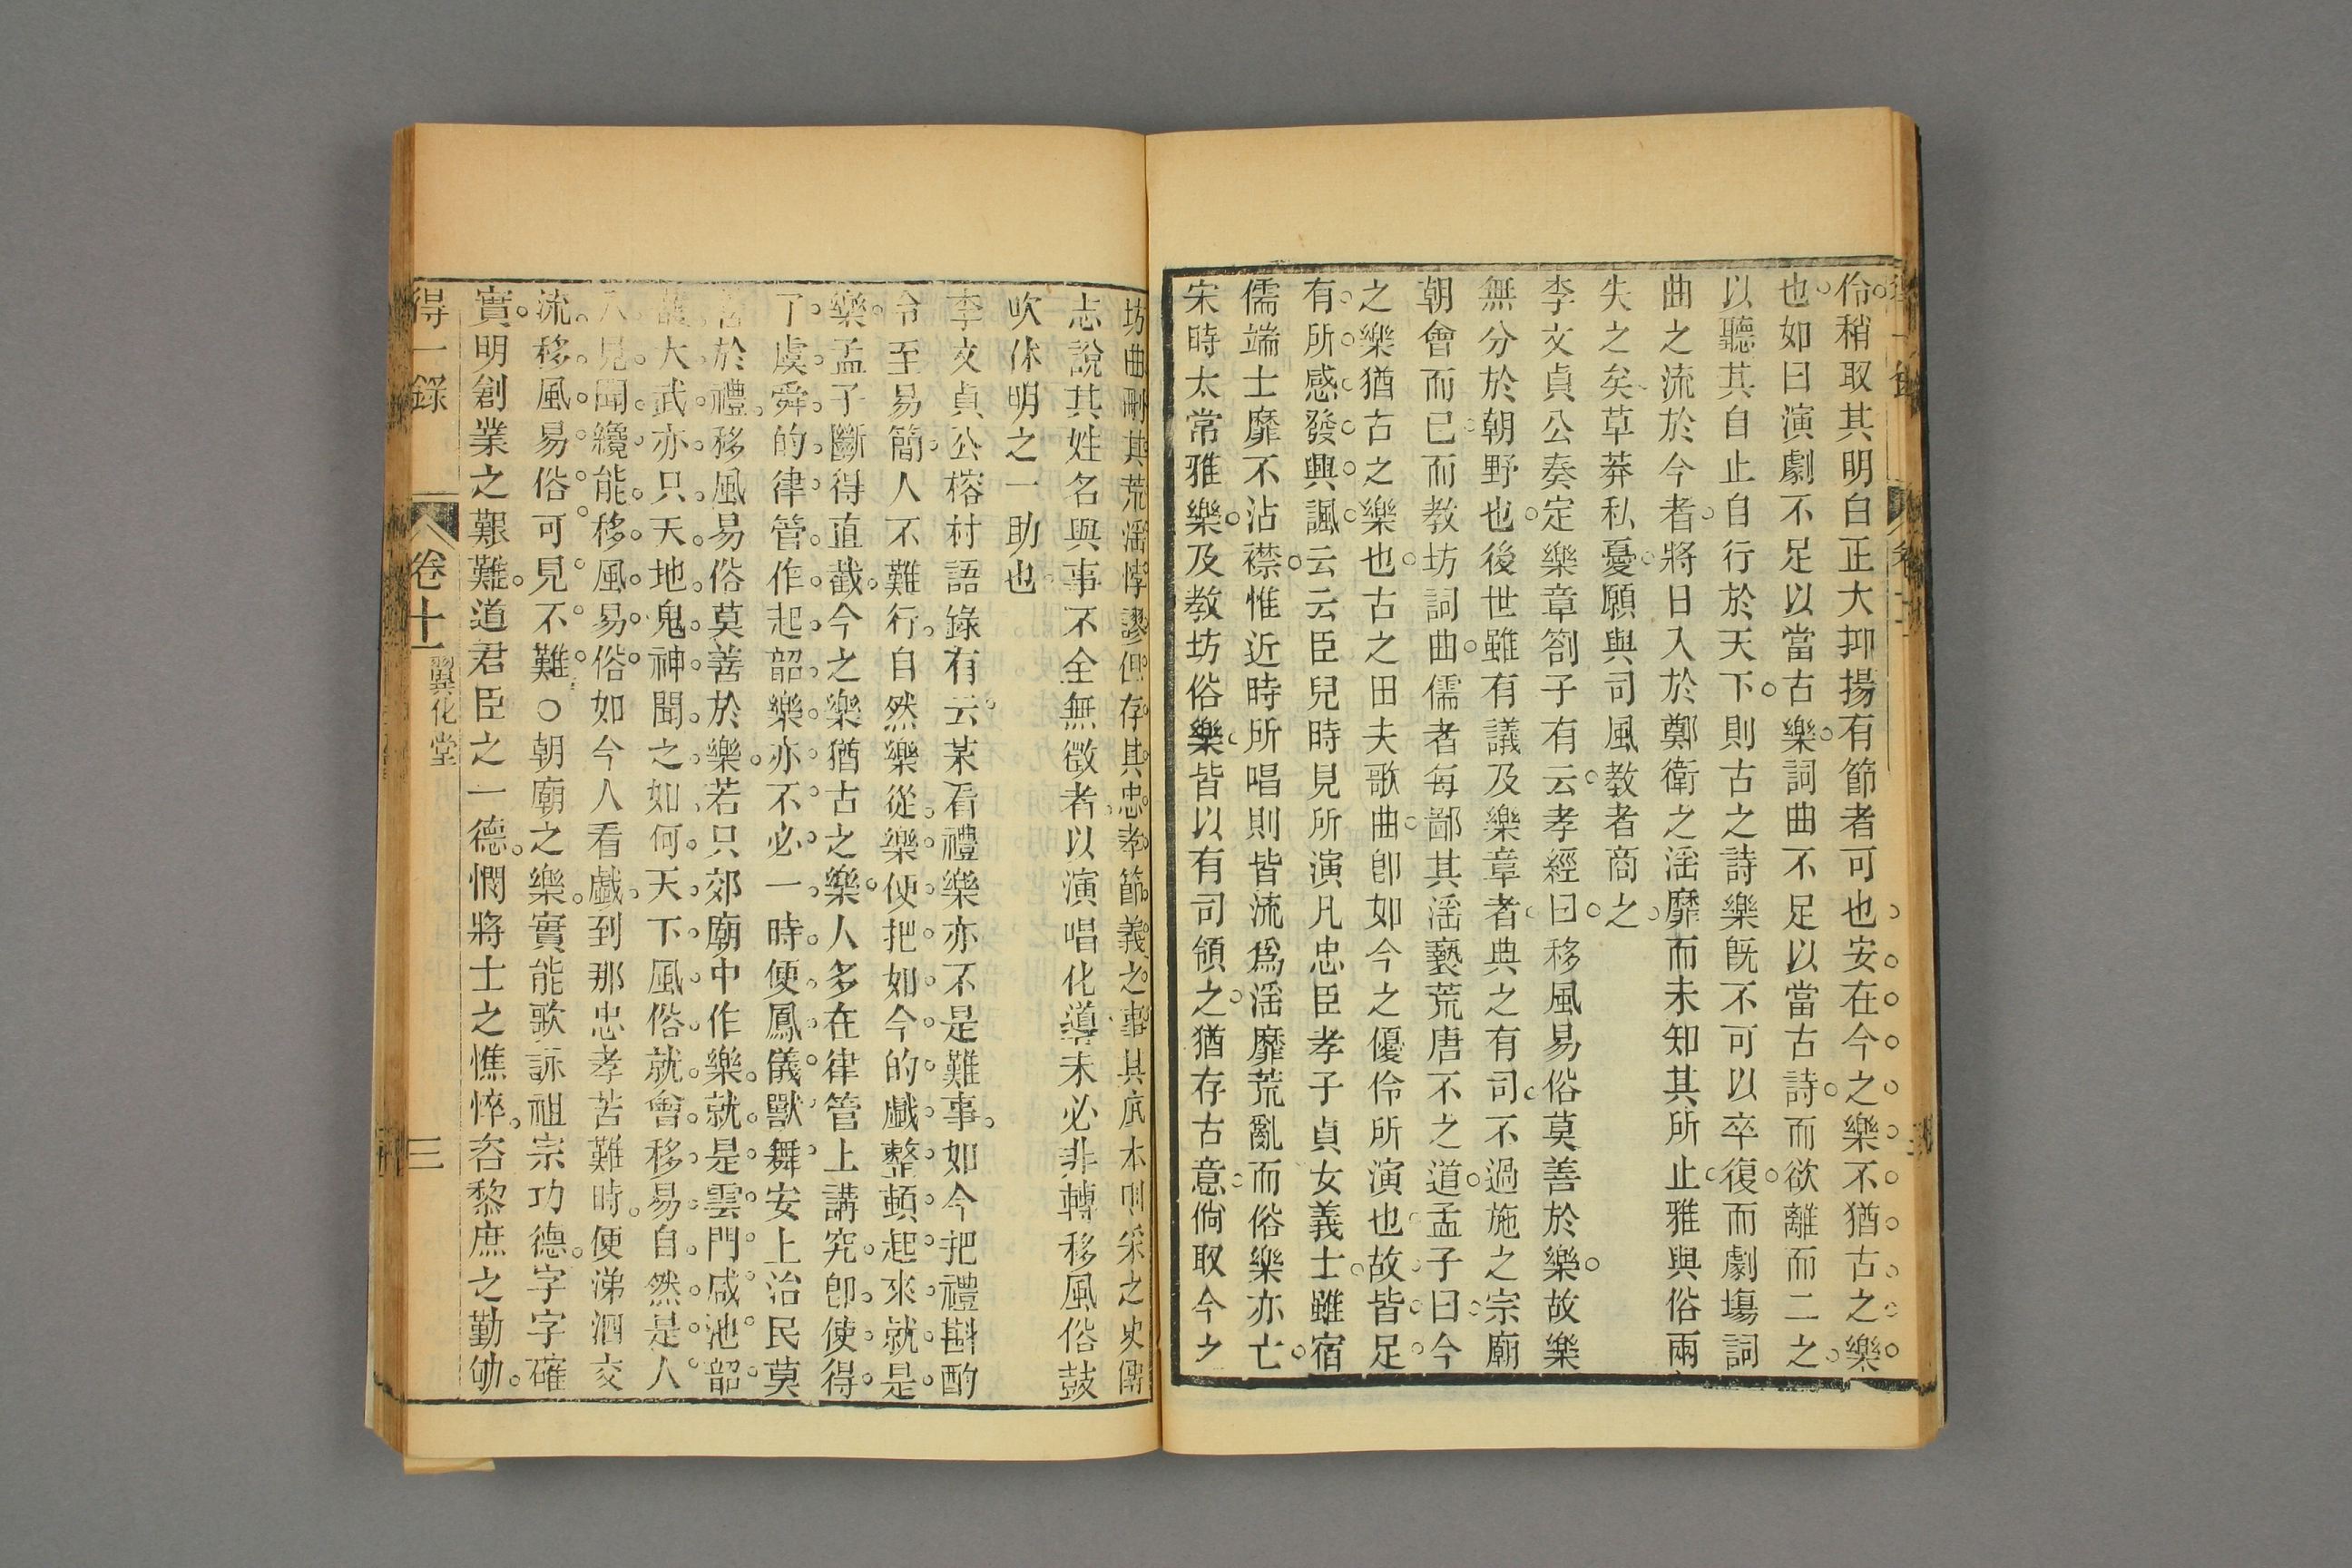 伶稍取其明白正大抑揚有節者可也安在今之樂不猶古之樂
也如曰演劇不足以當古樂詞曲不足以當古詩而欲離而二之
以聽其自止自行於天下則古之詩樂旣不可以卒復而劇塲詞
曲之流於今者將日入於鄭衛之滛靡而未知其所止雅與俗兩
失之矣草莽私憂願與司風教者商之
李文貞公奏定樂章劄子有云孝經曰移風易俗莫善於樂故樂
無分於朝野也後世雖有議及樂章者典之有司不過施之宗廟
朝會而已而教坊詞曲儒者每鄙其滛褻荒唐不之道孟子曰今
之樂猶古之樂也古之田夫歌曲卽如今之優伶所演也故皆足
有所感發興諷云云臣兒時見所演凡忠臣孝子貞女義士雖宿
儒端士靡不沾襟惟近時所唱則皆流爲滛靡荒亂而俗樂亦亡
宋時太常雅樂及教坊俗樂皆以有司領之猶存古意倘取今之
坊曲刪其荒滛悖謬但存其忠孝節義之事其底本則采之史傳
志說其姓名與事不全無徵者以演唱化導未必非轉移風俗鼓
吹休明之一助也
李文貞公榕村語錄有云某看禮樂亦不是難事如今把禮斟酌
令至易簡人不難行自然樂從樂便把如今的戲整頓起來就是
樂孟子斷得直截今之樂猶古之樂人多在律管上講究卽使得
了虞舜的律管作起韶樂亦不必一時便鳳儀獸舞安上治民莫
善於禮移風易俗莫善於樂若只郊廟中作樂就是雲門咸池韶
濩大武亦只天地鬼神聞之如何天下風俗就會移易自然是人
人見聞纔能移風易俗如今人看戲到那忠孝苦難時便涕泗交
流移風易俗可見不難○朝廟之樂實能歌詠祖宗功德字字確
實明創業之艱難道君臣之一德憫將士之憔悴咨黎庶之勤劬
得一錄
卷十一
翼化堂
三